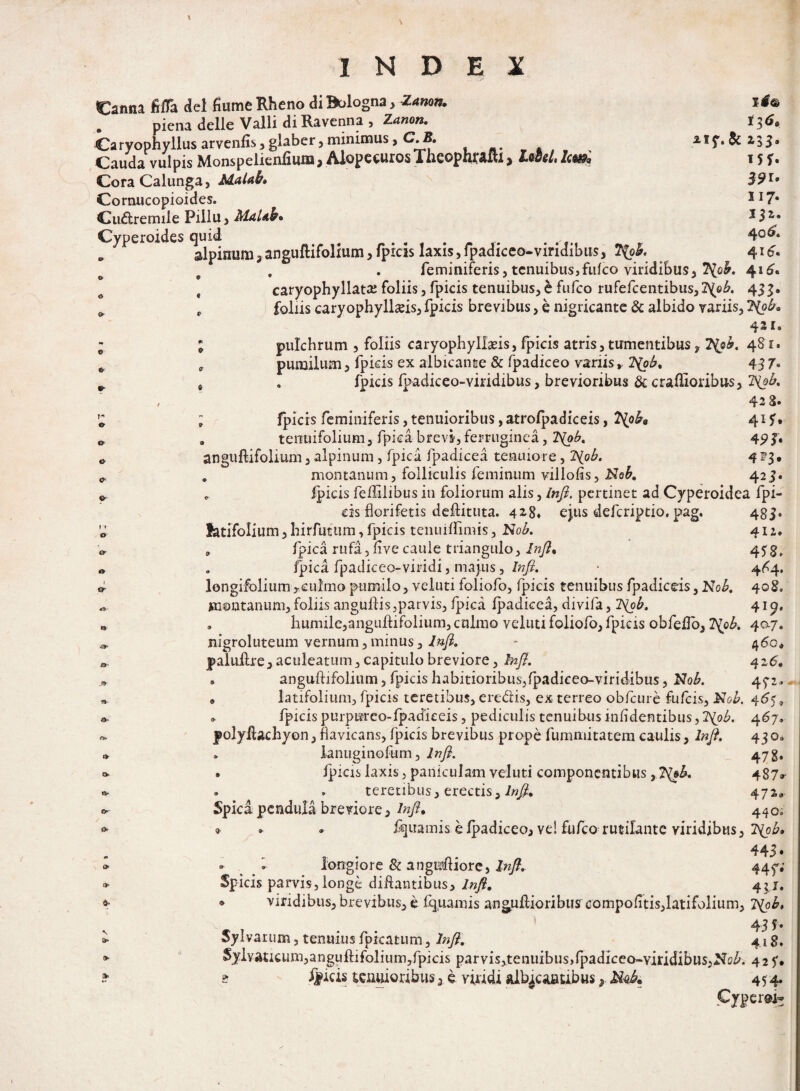 INDEX
Canna fissa del fiume Rheno di Bologna, Zanon. 160
piena delle Valli di Ravenna, Zanon. 136.
Caryophyllus arvensis, glaber, minimus, C. B. 215. & 233.
Cauda vulpis Monspeliensium, Alopecuros Theophrasti, Lobel. Icon. 155.
Cora Calunga, Malab. 391.
Cornucopioides. 117.
Cudtremile Pillu, Malab. 132.
Cyperoides quid 406.
„ alpinum, angustifolium, spicis laxis, spadiceo-viridibus, Nob. 416.
„ „ . feminiferis, tenuibus, fusco viridibus, Nob. 416.
„ „ caryophyllatæ foliis, spicis tenuibus, è fusco rufescentibus, Nob. 433.
„ „ foliis caryophyllæis, spicis brevibus, è nigricante & albido variis, Nob.
421.
„ „ pulchrum, foliis caryophyllæis, spicis atris, tumentibus, Nob. 481.
„ „ pumilum, spicis ex albicante & spadiceo variis, Nob. 437.
„ „ . spicis spadiceo-viridibus, brevioribus & crassioribus, Nob.
428.
„ „ spicis feminiferis, tenuioribus, atrospadiceis, Nob. 415.
„ „ tenuifolium, spicâ brevi, ferrugineâ, Nob. 493.
„ angustifolium, alpinum, spicâ spadiceâ tenuiore, Nob. 413.
„ . montanum, folliculis feminum villosis, Nob. 423.
„ „ spicis sessilibus in foliorum alis, Inst. pertinet ad Cyperoidea spi-
cis florifetis destituta. 428. ejus descriptio, pag. 483.
„ latifolium, hirsutum, spicis tenuissimis, Nob. 412.
„ „ spicâ rufâ, sive caule triangulo, Inst. 458.
„ . spicâ spadiceo-viridi, majus, Inst. 464.
„ longifolium, culmo pumilo, veluti folioso, spicis tenuibus spadiceis, Nob. 408.
„ montanum, foliis angustis, parvis, spicâ spadiceâ, divisa, Nob. 419.
„ „ humile, angustifolium, culmo veluti folioso, spicis obsesso, Nob. 407.
„ nigroluteum vernum, minus, Inst. 460.
„ palustre, aculeatum, capitulo breviore, Inst. 426.
„ „ angustifolium, spicis habitioribus, spadiceo-viridibus, Nob. 452.
„ „ latifolium, spicis teretibus, erectis, ex terreo obscurè fuscis, Nob. 465.
„ „ spicis purpureo-spadiceis, pediculis tenuibus insidentibus, Nob. 467.
„ polystachyon, flavicans, spicis brevibus propè summitatem caulis, Inst. 430.
„ „ lanuginosum, Inst. 478.
„ „ spicis laxis, paniculam veluti componentibus, Nob. 487.
„ „ „ teretibus, erectis, Inst. 472.
„ Spicâ pendulâ breviore, Inst. 440.
„ „ „ „ squamis è spadiceo, vel fusco rutilante viridibus, Nob.
443.
„ „ „ longiore & angustiore, Inst. 445.
„ Spicis parvis, longè distantibus, Inst. 431.
„ „ viridibus, brevibus, è squamis angustioribus compositis, latifolium, Nob.
435.
„ Sylvarum, tenuius spicatum, Inst. 418.
„ Sylvaticum, angustifolium, spicis parvis, tenuibus, spadiceo-viridibus, Nob. 425.
„ „ spicis tenuioribus, è viridi albicantibus, Nob. 454.
Cyperoi-